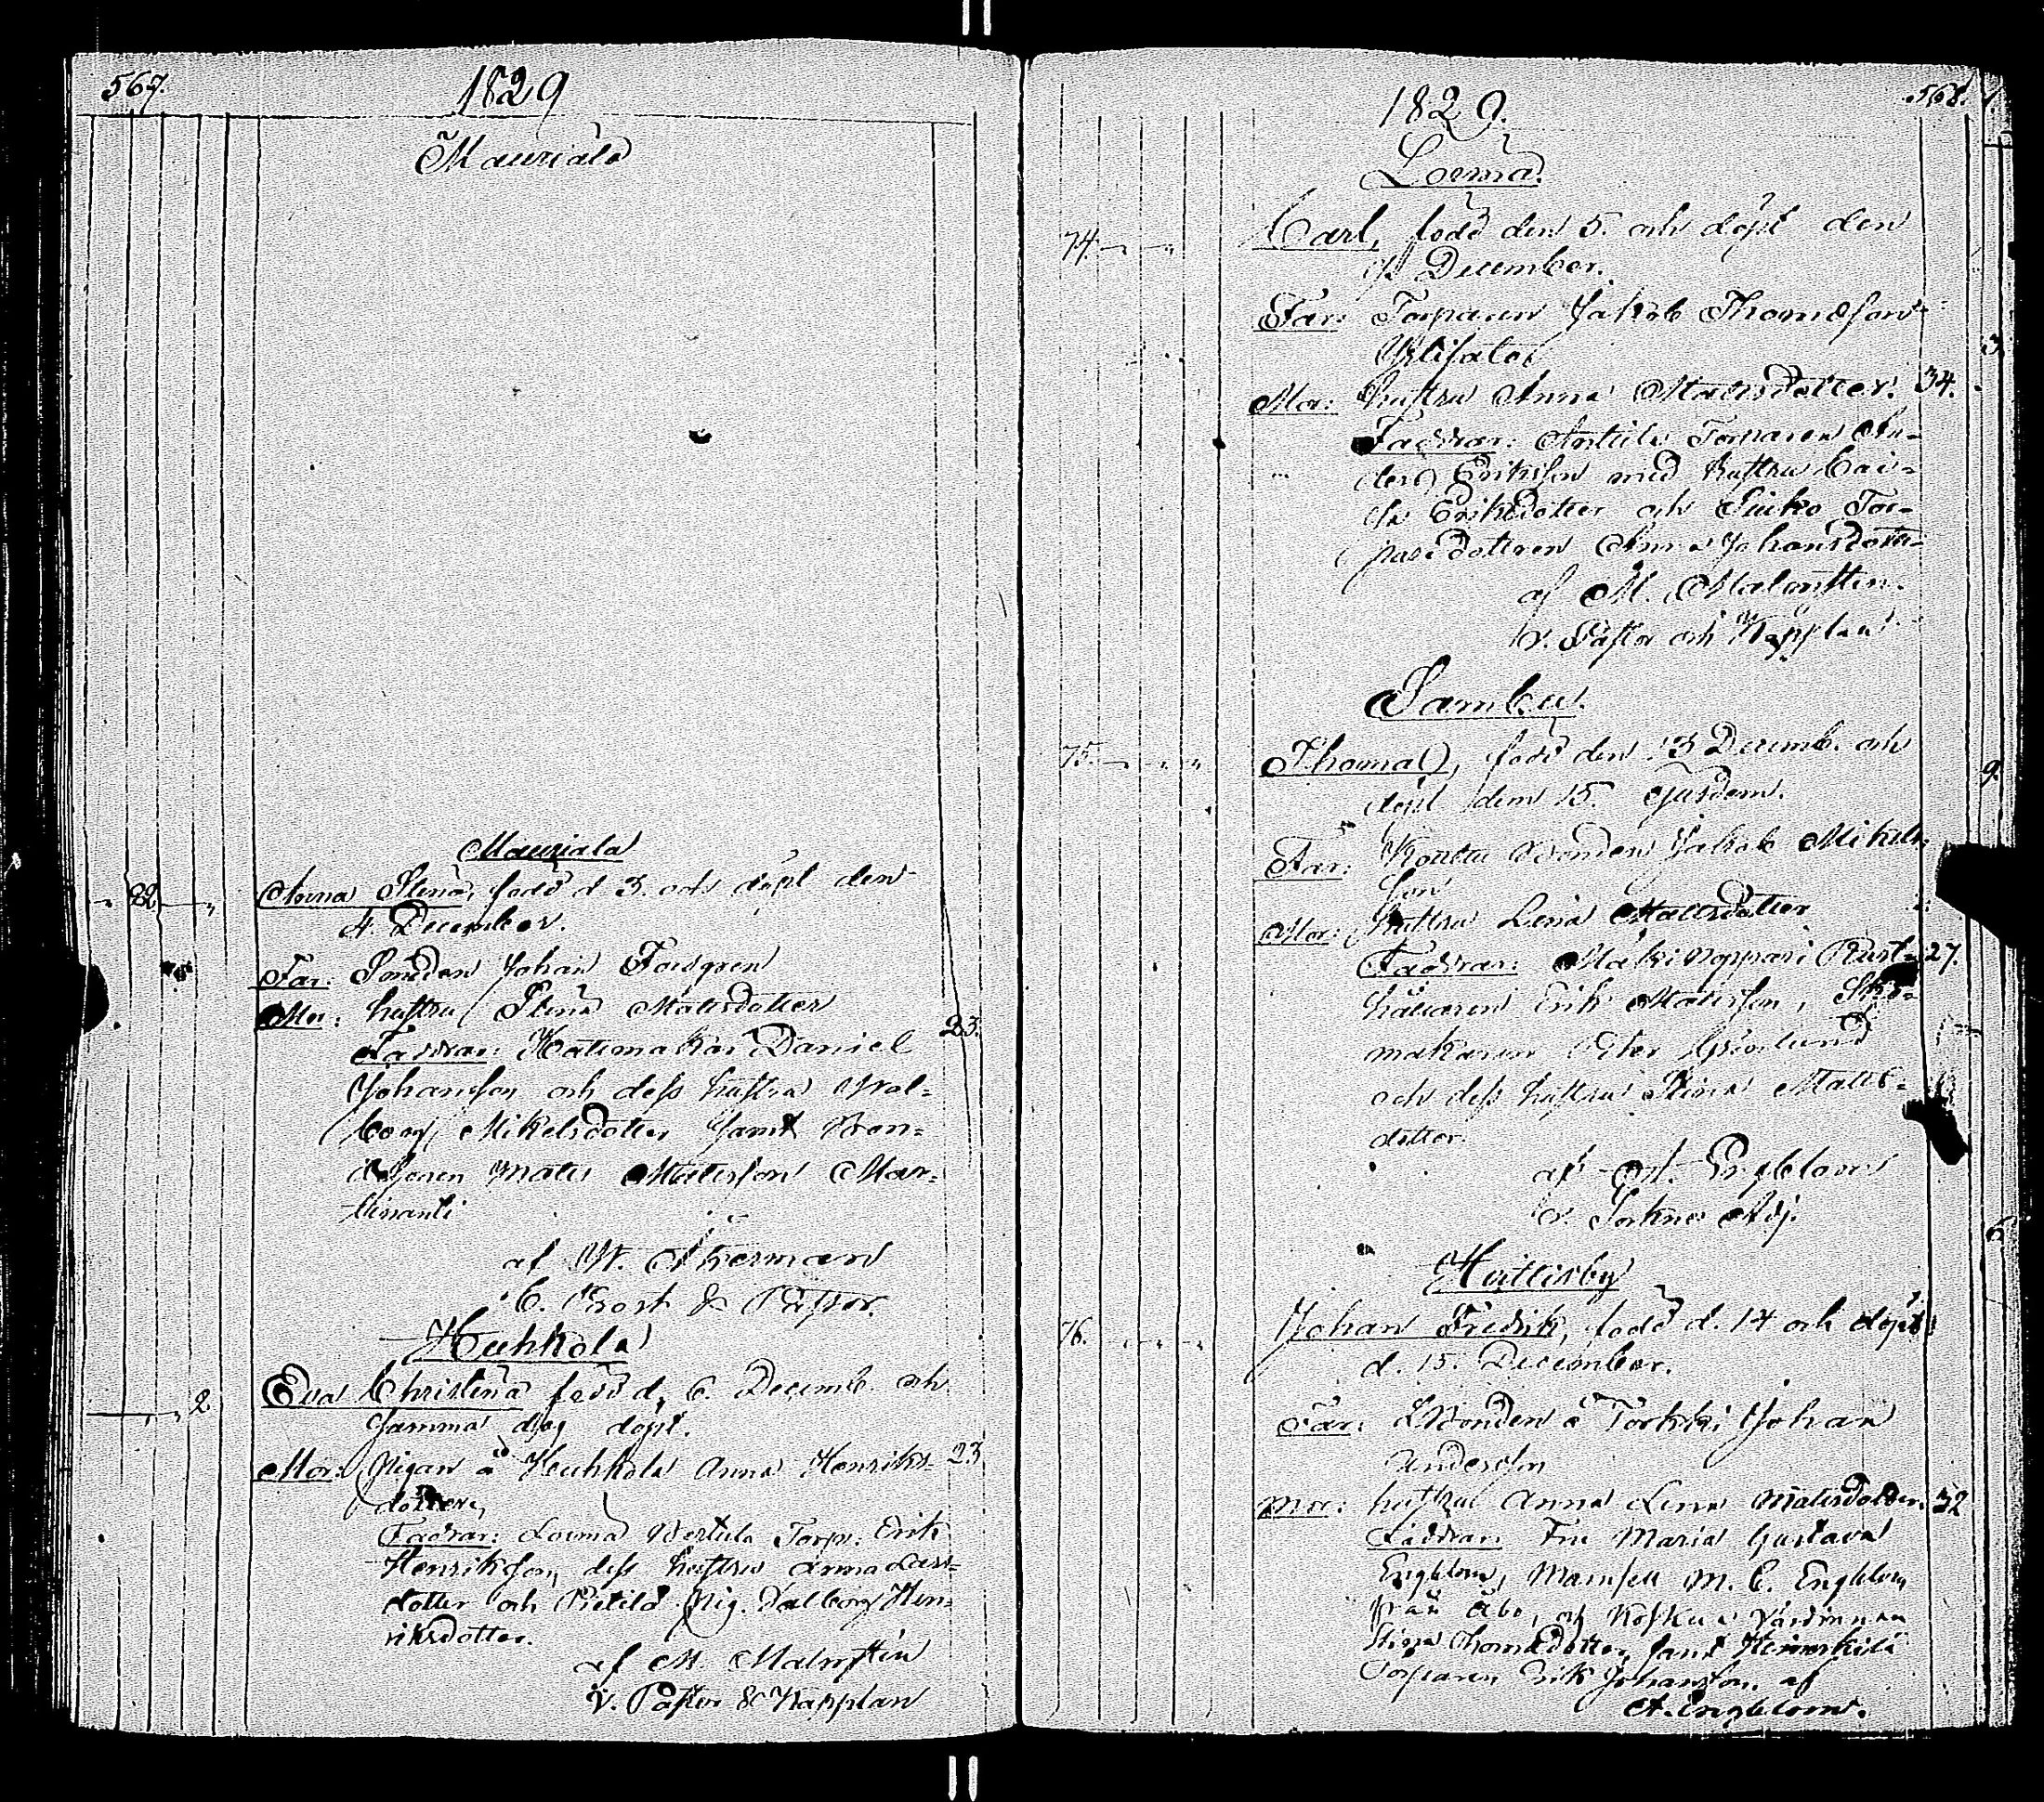 567.
1829
Mauriala
Mauriala
22. Anna Stina, född d 3. och döpt den
4 December.
Far: Smeden Johan Forsgren
Mor: hustru Stina Matsdotter 23.
Faddrar: Hattmakar Daniel
Johansson och dess hustru Wal-
borg Mikelsdotter samt
Matts Mattsson Mar-
tinanti
af W. Åkerman
C. Prost & Pastor.
Huhkola
2. Eva Christina född d, 6. Decemb. och
samma dag döpt.
Mor: Pigan å Huhkola Anna Henriks- 23
dotter,
Faddrar: Loima Bertula Torp: Erik
Henriksson, dess hustru Anna
dotter och Pietilä Pig. Walborg Hen-
riksdotter.
af M. Malmsten
V. Pastor & Kapplan
568.
1829.
Loima.
74. Carl, född den 5. och döpt den
December.
Far: Torparen Jakob Thomsson
Mor: hustru Anna Mattsdotter. 34.
Faddrar: Anttila Torparen An-
ders Eriksson med hustru Cai-
sa Eriksdotter och Tor-
paredotteren Anna Johansdotter
af M. Malmsten.
v. Pastor och Kapplan
Sambu.
75. Thomas, född den 13 Decemb. och
döpt den 15. Ejusdem.
Far: Bonden Jakob Mikels-
son
Mor: hustru Lena Mattsdotter
Faddrar: Mäki Noppari Rust- 27.
hållaren Erik Matsson, Sko-
makaren Peter Grönlund
och dess hustru Stina Matts-
dotter.
af A. Engblom
v. Sockne Adj.
Huttisby
76. Johan Fredrik, född d. 14 och döpt
d. 15. December.
Far: Bonden å Torkki Johan
Andersson
Mor: hustru Anna Lena Matsdotter 32
Faddrar: Fru Maria Gustava
Engblom, Mamsell M. C. Engblom
från Åbo, och Koskua Värdinnan
Stina Thomsdotter, samt
Torparen Erik Johansson. af
A. Engblom.